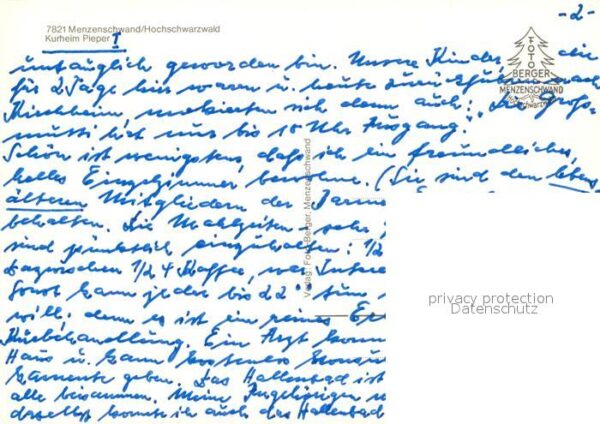 -2-
7821 Menzenschwand/Hochschwarzwald
Kurheim Pieper I
FOTO
BERGER
MENZENSCHWAND
Hochschwarzwald
untauglich geworden bin. Unsre Kinder, die
für 2 Tage hier waren u. heute zurückfuhren nach
Kirchheim, mokierten sich denn auch: "Die Groß-
mutti hat nur bis 10 Uhr Ausgang".
Schön ist wenigstens, daß ich ein freundliches,
helles Einzelzimmer bewohne. (Sie sind den lebens
älteren Mitgliedern der Barm
behalten. Die Mahlzeiten sehr
sind pünktlich einzuhalten: 1/2
dazwischen 1/2 4 Kaffee, wer Intere
Sonst kann jeder bis 22° tun
will, denn es ist ein reines Er
Kurbehandlung. Ein Arzt komm
Haus u. kann kostenlos Konsu
geben. Das Hallenbad ist
alle beisammen. Meine
daselbst konnte ich auch das Hallenbad
Verlag: Foto Berger, Menzenschwand
privacy protection
Datenschutz